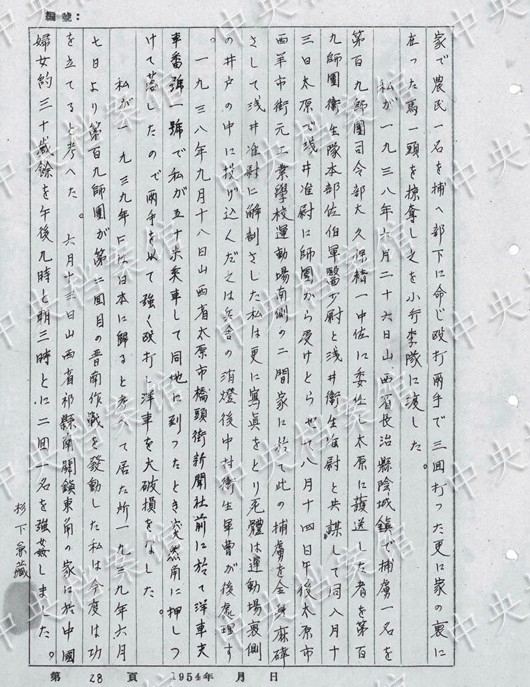 編號:
家で農民一名を捕へ部下に命じ毆打両手で三回打った更に家の裏に
在った馬一頭を掠奪し之を小行李隊に渡した。
私が一九三八年六月二十六日山西省長治縣陰城鎮で捕虜一名を
第百九師團司令部大久保精一中佐に委任し太原に護送した者を第百
九師團衛生隊本部佐伯軍醫少尉と浅井衛生准尉と共謀して同八月十
三日太原で浅井准尉に師團から受けとらせて八月十四日午後太原市
西羊市街元工業學校運動場南側の二間家に於て此の捕虜を全身麻碎
さして浅井准尉に解剖さした私は更に寫真をとり死體は運動場裏側
の井戸の中に投げ込んだ之は兵舎の消燈後中村衛生軍曹が後處理す
。一九三八年九月十八日山西省太原市橋頭街新聞社前に於て洋車夫
車番號一號で私が五十米乘車して同地に到ったとき突然前に押しつ
けて落したので両手を以て強く毆打し洋車を大破損をなした。
私が一九三九年には日本に歸ると考へて居た所一九三九年六月
七日より第百九師團が第二回目の晋南作戰を發動した私は今度は功
を立てると考へた。六月十三日山西省祁縣南關鎮東角の家に於中國
婦女約三十歳餘を午後九時と朝三時とに二回一名を強姦しました。
杉下兼藏
第 28 頁 1954年 月 日
中央檔案館